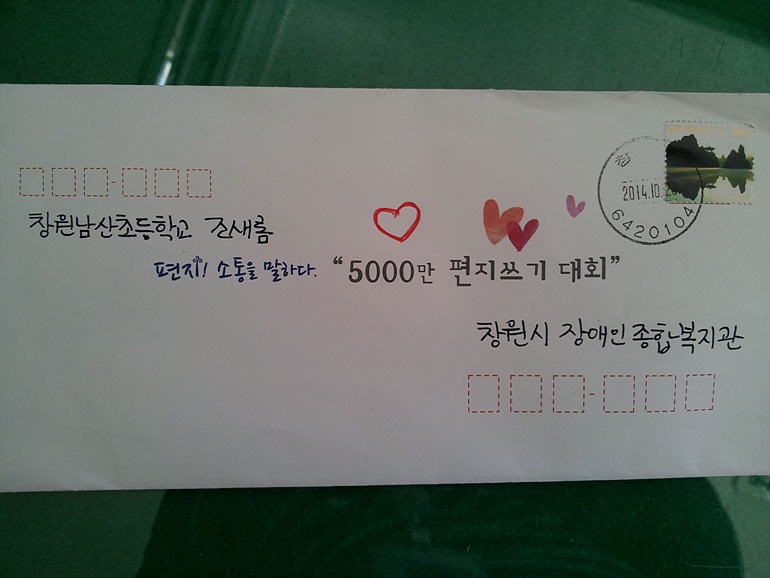 창원남산초등학교 조새롬
편지! 소통을 말하다. “5000만 편지쓰기 대회”
창원시 장애인종합복지관
창
2014.10.
6420104